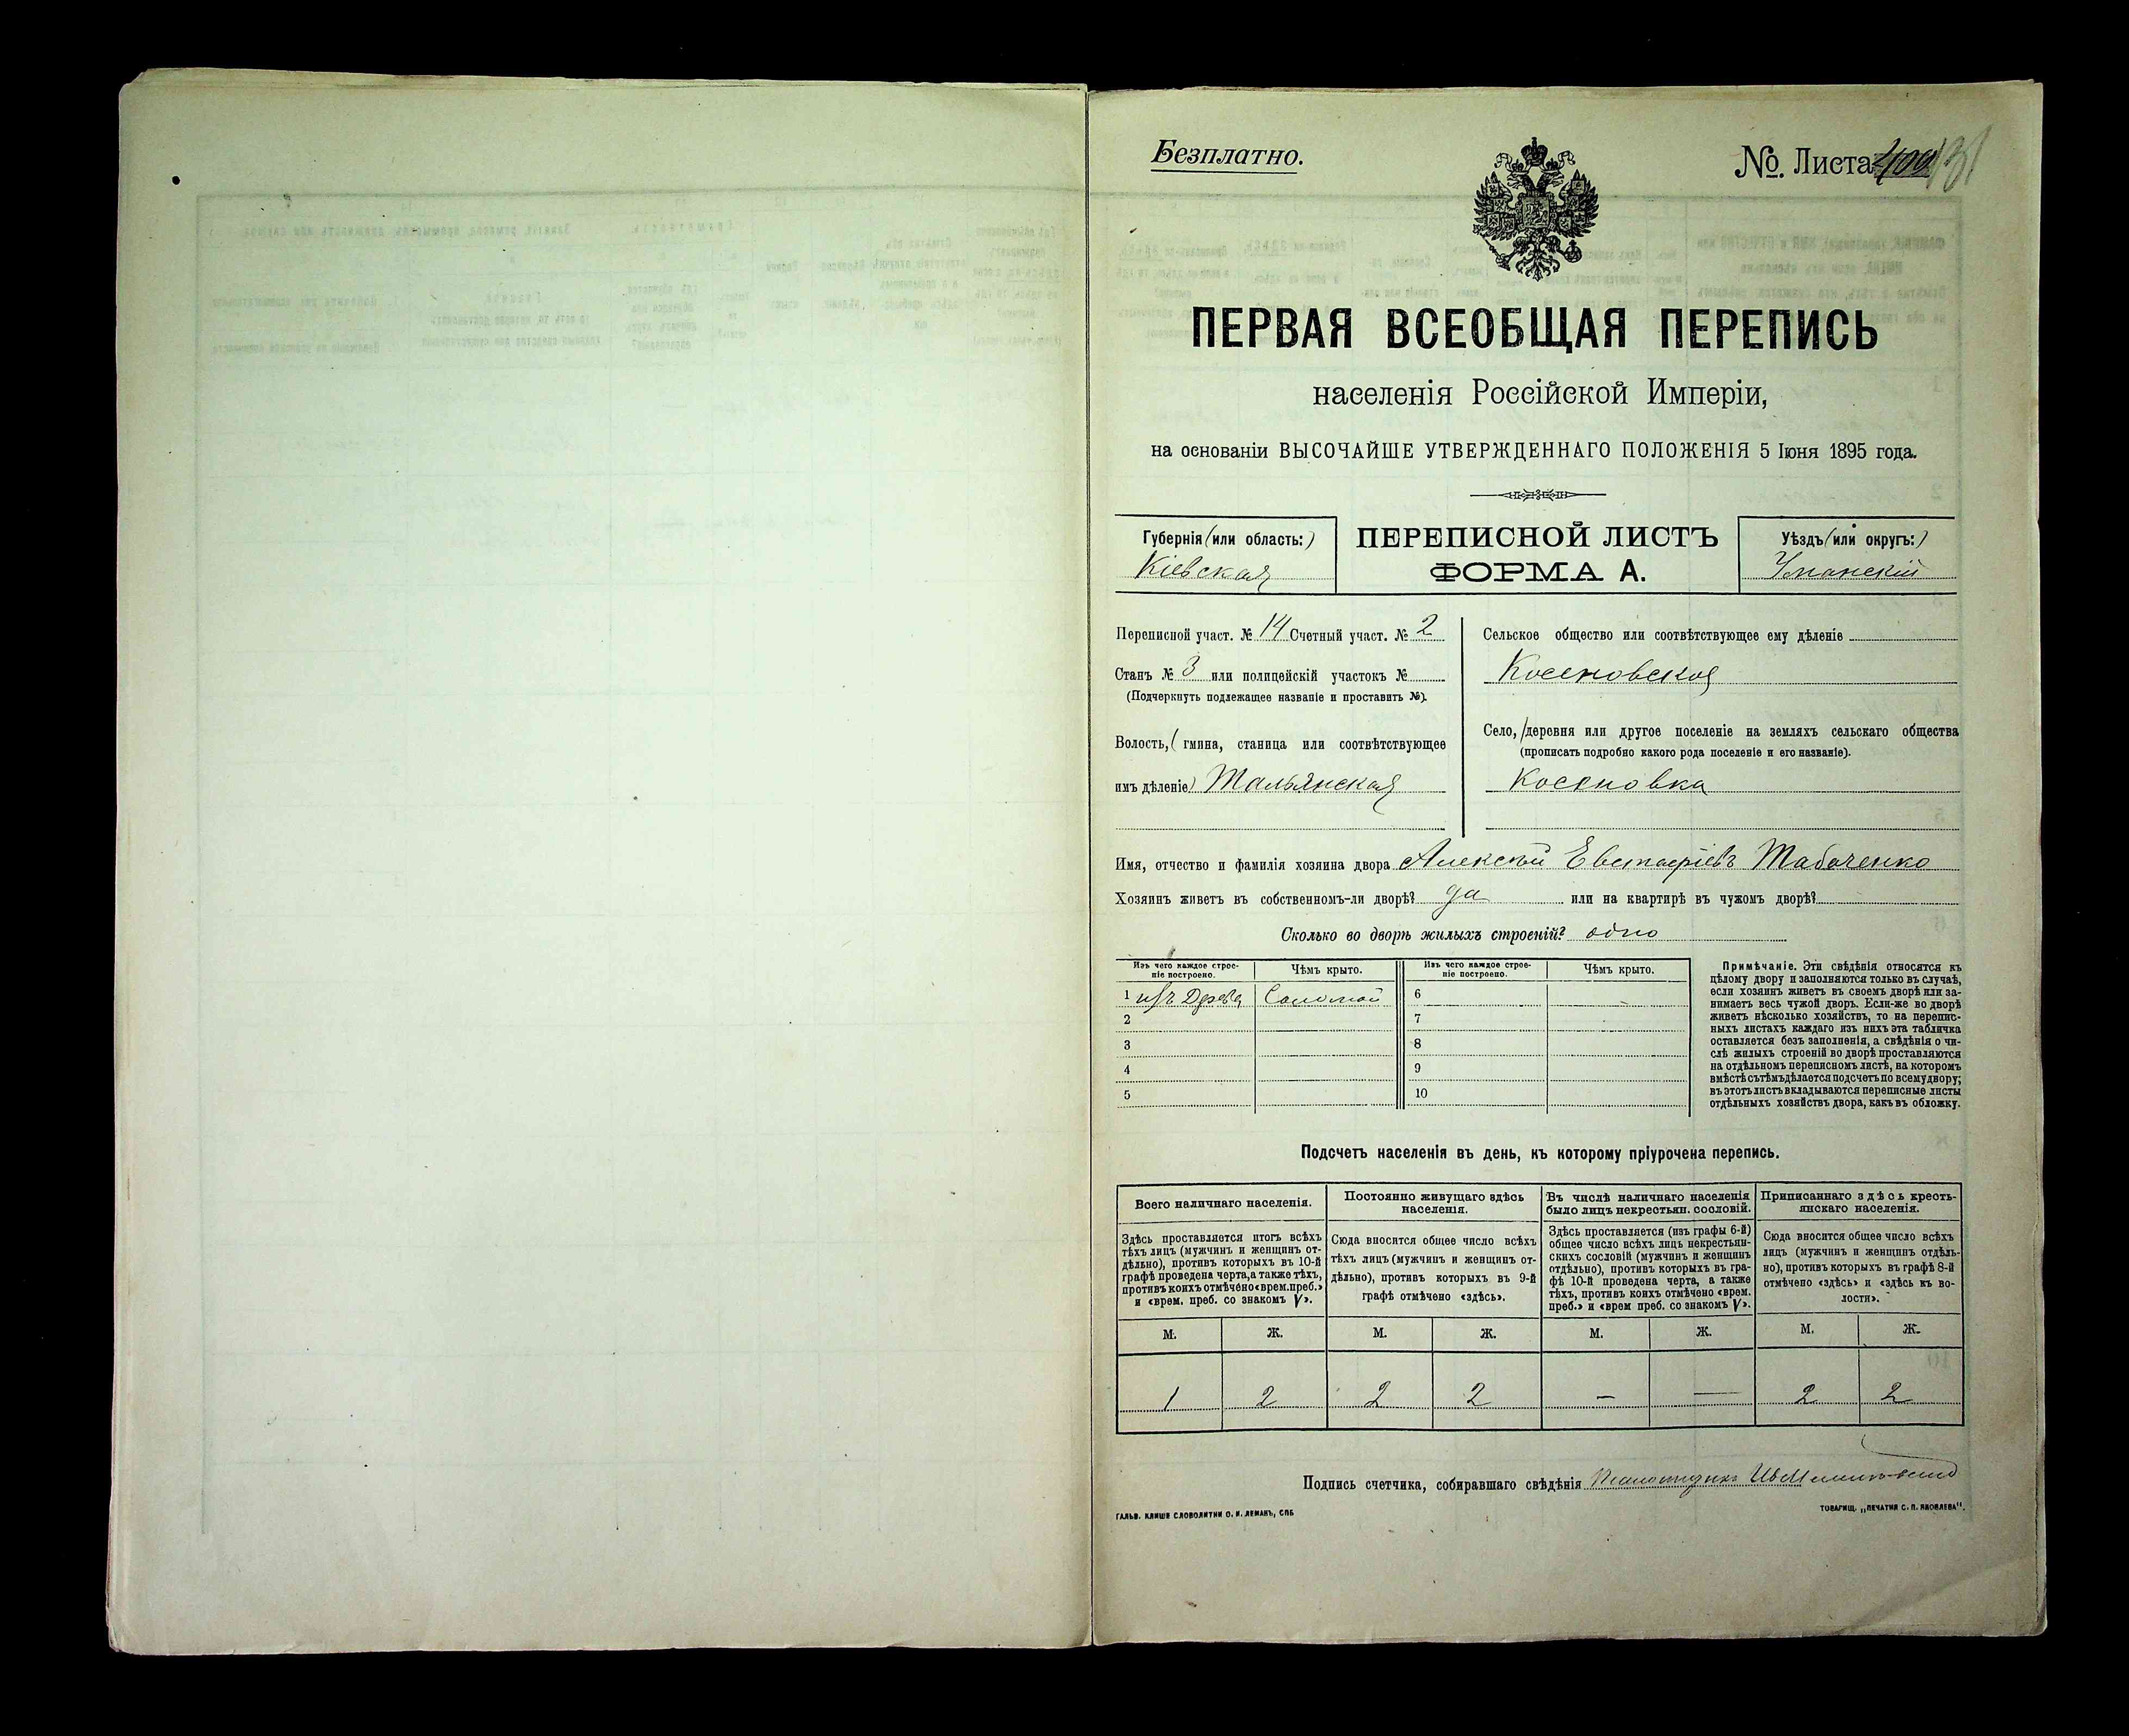 Безплатно.
№. Листа
ПЕРВАЯ ВСЕОБЩАЯ ПЕРЕПИСЬ
населенія Россійской Имперіи,
на основаніи ВЫСОЧАЙШЕ УТВЕРЖДЕННАГО ПОЛОЖЕНІЯ 5 Іюня 1895 года.
Губернія (или область:)
Кіевская
ПЕРЕПИСНОЙ ЛИСТЪ
ФОРМА А.
Уѣздъ (или округъ:)
Уманскій
Переписной участ. № 14 Счетный участ. № 2
Станъ № 3 или полицейскій участокъ №
(Подчеркнуть подлежащее названіе и проставить №).
Волость, (гмина, станица или соотвѣтствующее
имъ дѣленіе) Тальянская
Сельское общество или соотвѣтствующее ему дѣленіе
Косеновское
Село, деревня или другое поселеніе на земляхъ сельскаго общества
(прописать подробно какого рода поселеніе и его названіе).
Косеновка
Имя, отчество и фамилія хозяина двора Алексѣй Евстафіевъ Табаченко
Хозяинъ живетъ въ собственномъ-ли дворѣ? да или на квартирѣ въ чужомъ дворѣ?
Сколько во дворѣ жилыхъ строеній? одно
Изъ чего каждое строе-
ніе построено.
Чѣмъ крыто.
Изъ чего каждое строе-
ніе построено.
Чѣмъ крыто.
1 изъ Дерева Соломой 6
2 7
3 8
4 9
5 10
Примѣчаніе. Эти свѣдѣнія относятся къ
цѣлому двору и заполняются только въ случаѣ,
если хозяинъ живетъ въ своемъ дворѣ или за-
нимаетъ весь чужой дворъ. Если-же во дворѣ
живетъ нѣсколько хозяйствъ, то на перепис-
ныхъ листахъ каждаго изъ нихъ эта табличка
оставляется безъ заполненія, а свѣдѣнія о чи-
слѣ жилыхъ строеній во дворѣ проставляются
на отдѣльномъ переписномъ листѣ, на которомъ
вмѣстѣ съ тѣмъ дѣлается подсчетъ по всему двору;
въ этотъ листъ вкладываются переписные листы
отдѣльныхъ хозяйствъ двора, какъ въ обложку.
Подсчетъ населенія въ день, къ которому пріурочена перепись.
Всего наличнаго населенія.
Здѣсь проставляется итогъ всѣхъ
тѣхъ лицъ (мужчинъ и женщинъ от-
дѣльно), противъ которыхъ въ 10-й
графѣ проведена черта, а также тѣхъ,
противъ коихъ отмѣчено «врем. преб.»
и «врем. преб. со знакомъ V».
Постоянно живущаго здѣсь
населенія.
Сюда вносится общее число всѣхъ
тѣхъ лицъ (мужчинъ и женщинъ от-
дѣльно), противъ которыхъ въ 9-й
графѣ отмѣчено «здѣсь».
Въ числѣ наличнаго населенія
было лицъ некрестьян. сословій.
Здѣсь проставляется (изъ графы 6-й)
общее число всѣхъ лицъ некрестьян-
скихъ сословій (мужчинъ и женщинъ
отдѣльно), противъ которыхъ въ гра-
фѣ 10-й проведена черта, а также
тѣхъ, противъ коихъ отмѣчено «врем.
преб.» и «врем преб. со знакомъ V».
Приписаннаго здѣсь кресть-
янскаго населенія.
Сюда вносится общее число всѣхъ
лицъ (мужчинъ и женщинъ отдѣль-
но), противъ которыхъ въ графѣ 8-й
отмѣчено «здѣсь» и «здѣсь къ во-
лости».
М. Ж. М. Ж. М. Ж. М. Ж.
1 2 2 2 — — 2 2
Подпись счетчика, собиравшаго свѣдѣнія
ГАЛЬВ. КЛИШЕ СЛОВОЛИТНИ О. И. ЛЕМАНЪ, СПБ
ТОВАРИЩ. „ПЕЧАТНЯ С. П. ЯКОВЛЕВА".